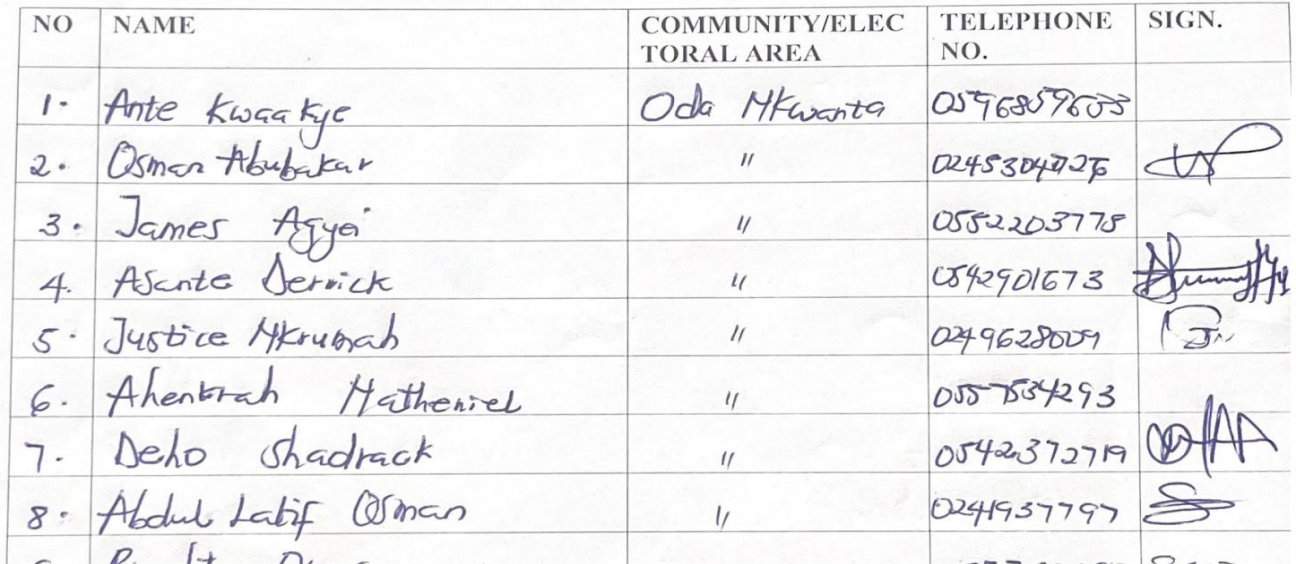 NO NAME COMMUNITY/ELECTORAL AREA TELEPHONE NO. SIGN.
1. Ante Kwaakye Oda Nkwanta 0596859633
2. Osman Abubakar "
3. James Agyei " 0552203778
4. Asante Derrick " 0542901673
5. Justice Nkrumah " 0249628009
6. Ahenkrah Natheniel " 0557534293
7. Deho Shadrack " 0542372719
8. Abdul Latif Osman " 0241937797